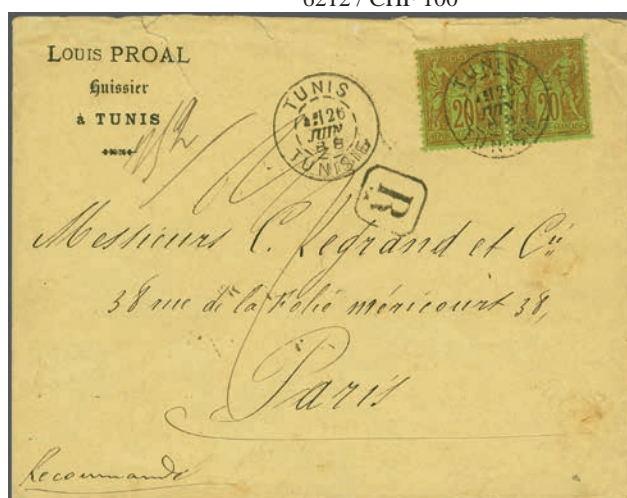 6212 / CHF 100
LOUIS PROAL
Huissier
à TUNIS
TUNIS
26
JUIN
88
TUNISIE
20
20
TUNIS
26
JUIN
R
Messieurs C. Legrand et Cie
38 rue de la Folie méricourt 38,
Paris
Recommandé